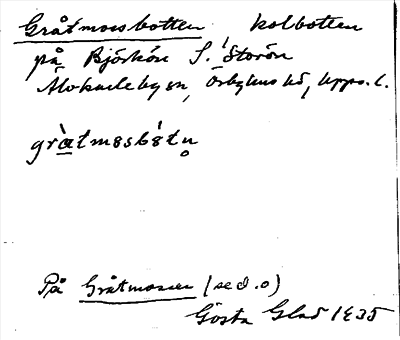 Gråtmossbotten kolbotten
på Björkön S. Storön
Älvkarleby sn, Örbyhus hd, Upps. l.
gràtmɵsbɵ́tn̥
På Gråtmossen (se d. o)
Gösta Glad 1935